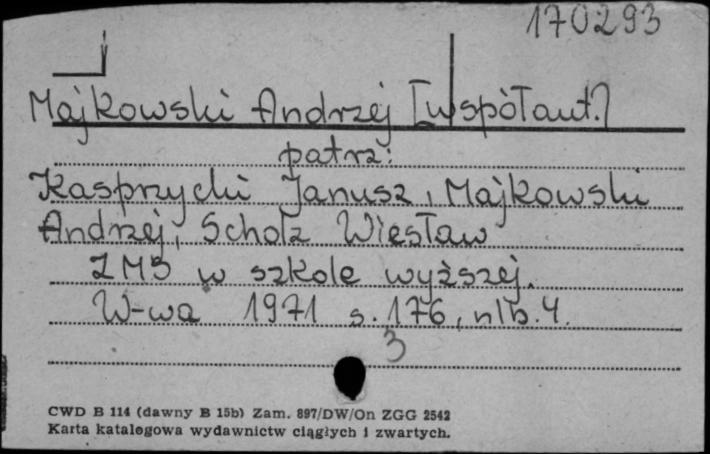 170293
Majkowski Andrzej [współaut.]
patrz:
Kasprzycki Janusz, Majkowski
Andrzej, Scholz Wiesław
ZMS w szkole wyższej.
W-wa 1971 s. 176, nlb. 4.
3
CWD B 114 (dawny B 15b) Zam. 897/DW/On ZGG 2542
Karta katalogowa wydawnictw ciągłych i zwartych.